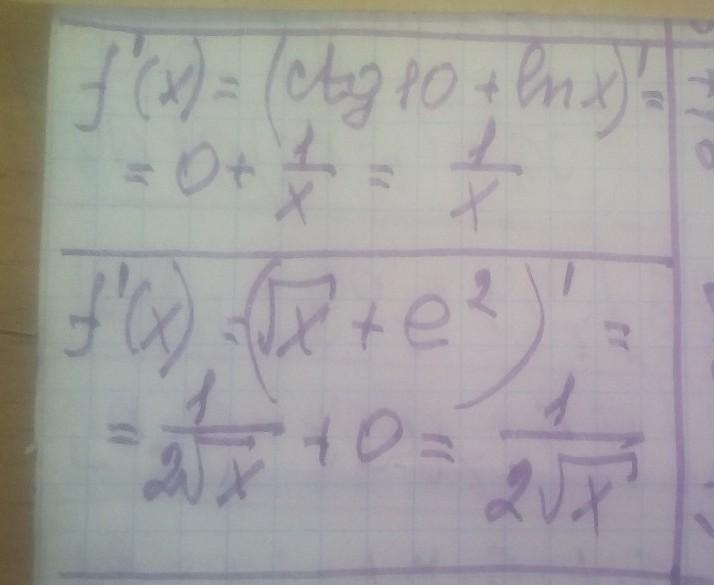 f'(x) = (ctg 10 + ln x)' =
= 0 + 1/x = 1/x
f'(x) = (√x + e²)' =
= 1/(2√x) + 0 = 1/(2√x)